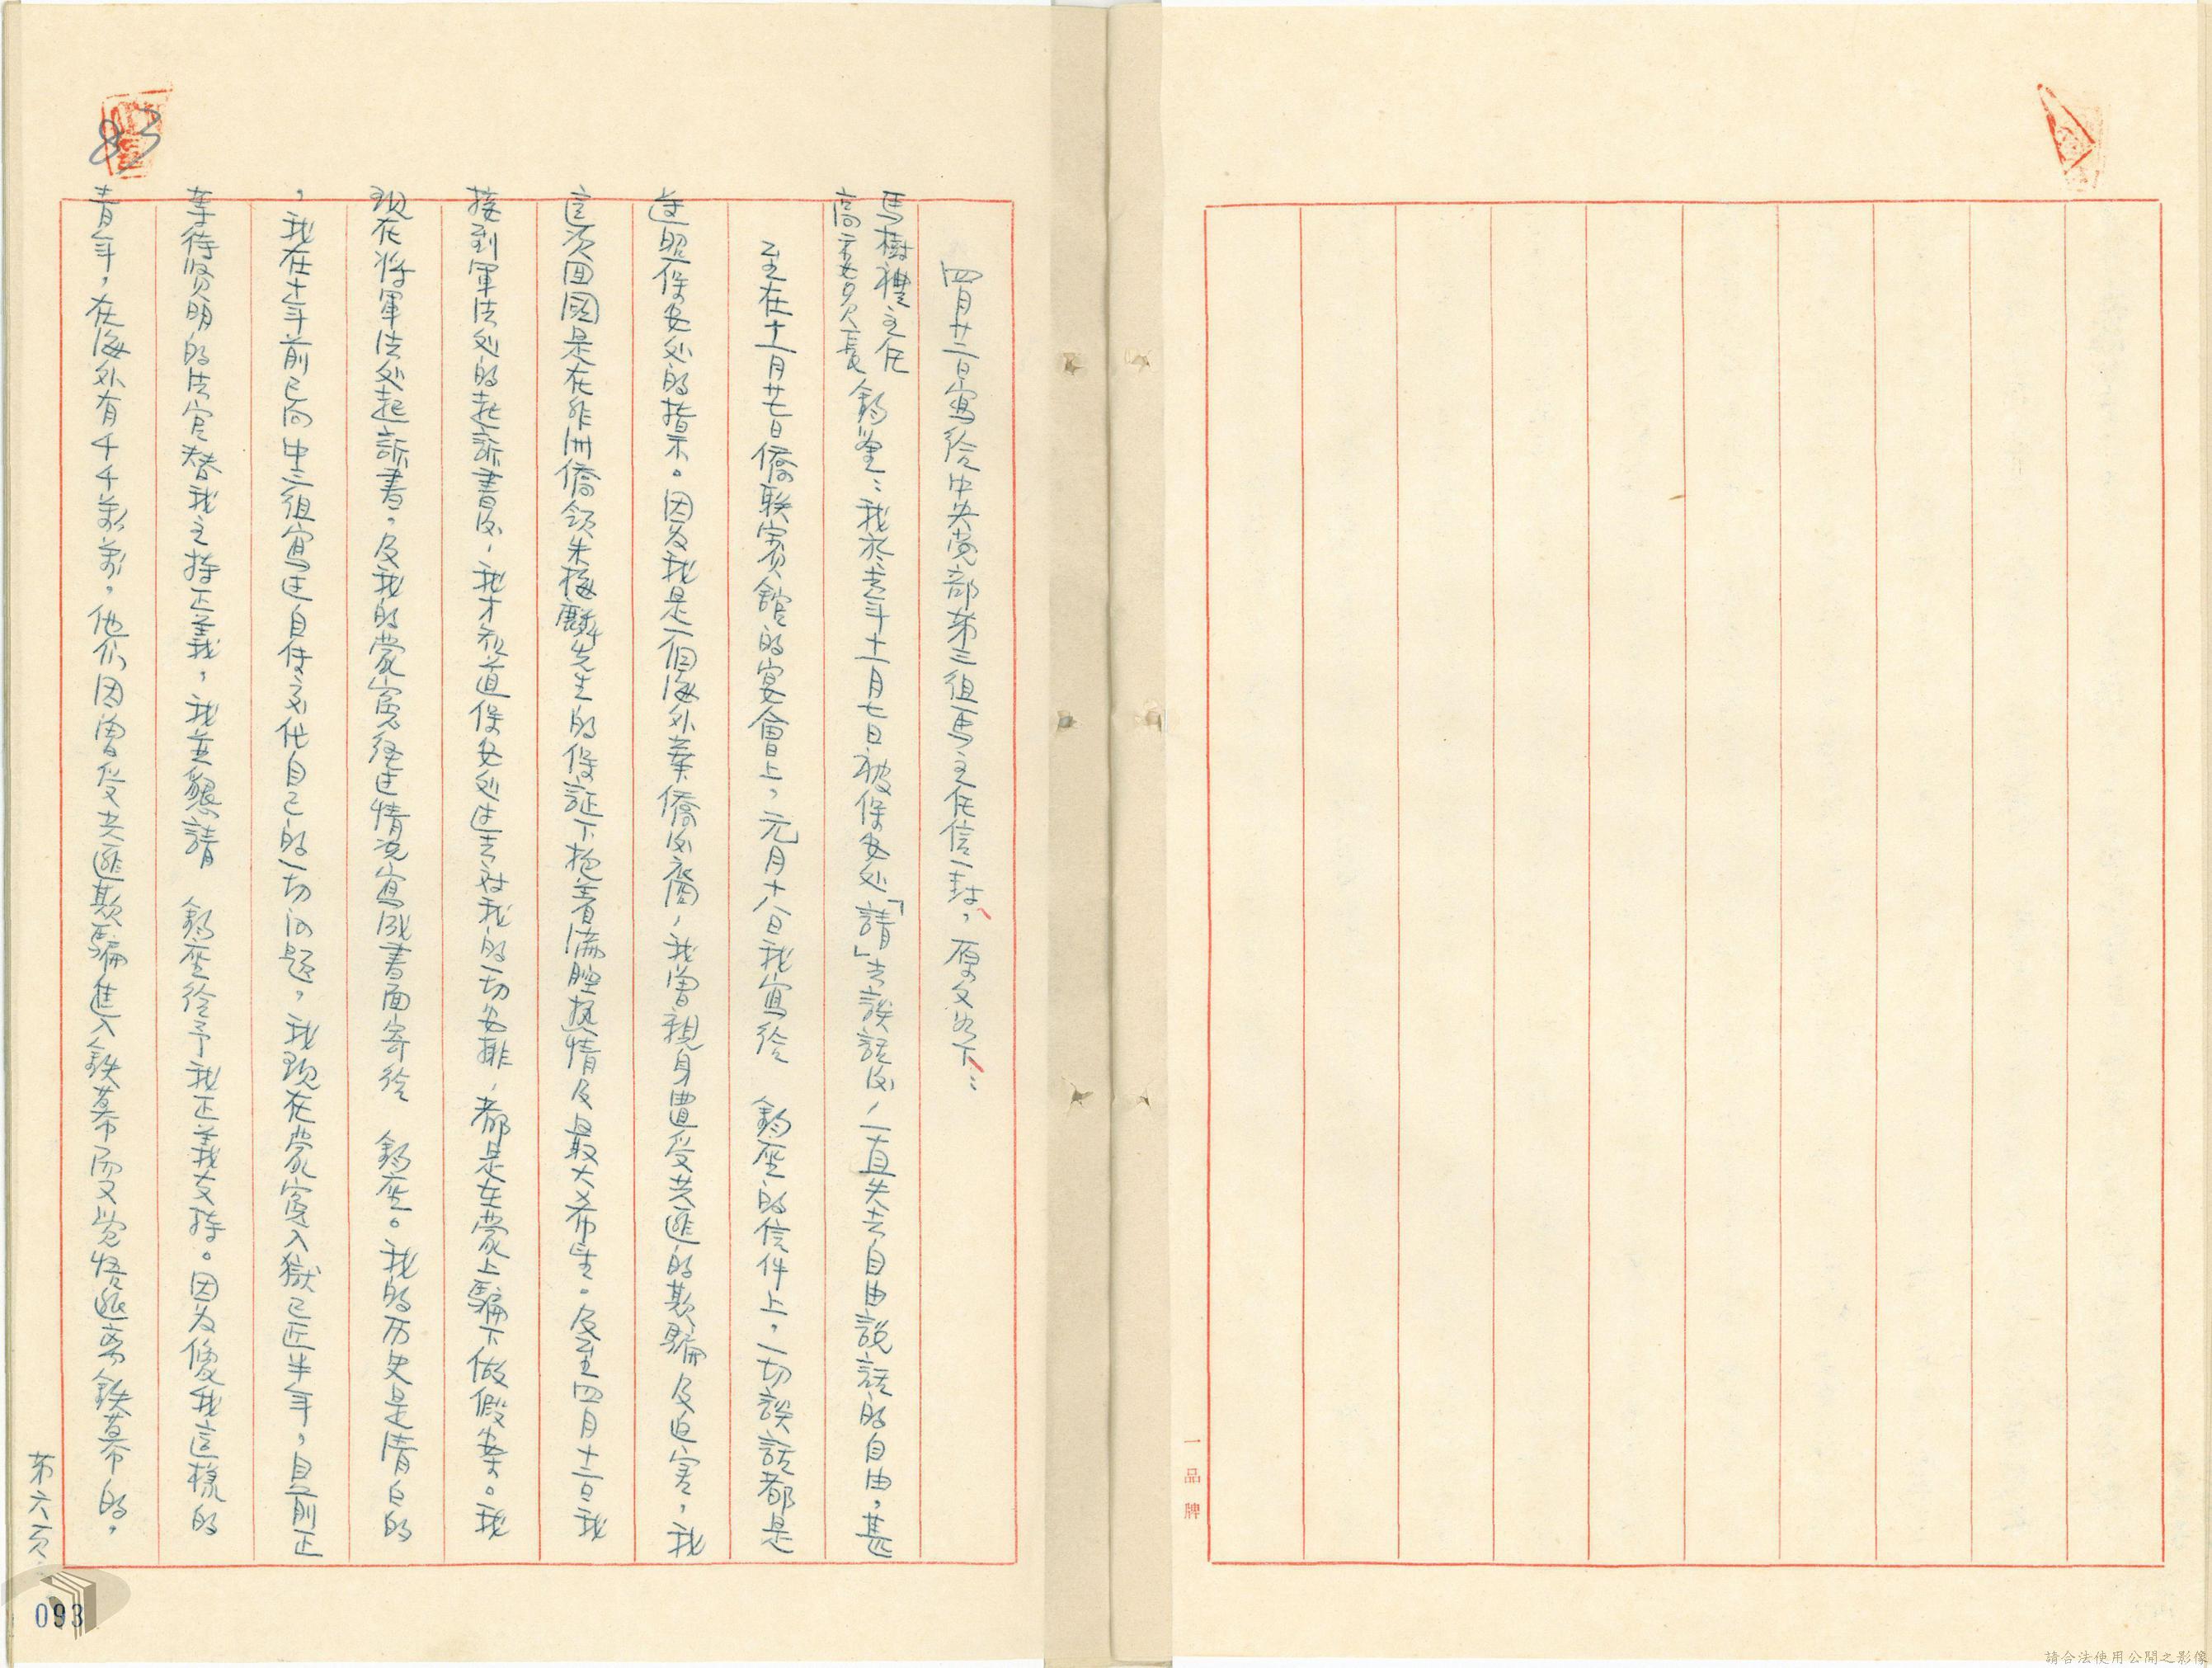 四月廿二日寫给中央党部第三组馬主任信一封，原文如下：
馬樹禮主任
高秘長 鈞鉴：我於去年十一月七日被保安处「請」去談話後，一直失去自由說話的自由，甚
至在十一月廿七日僑联賓館的宴會上，元月十八日我寫给　鈞座的信件上，一切談話都是
遵照保安处的指示。因为我是一個海外華僑後裔，我曾親身遭受共匪的欺騙及迫害，我
這次回國是在非洲僑领朱梅麟先生的保証下抱着滿腔热情及最大希望。及至四月十二日我
接到軍法处的起訴書後，我才知道保安处过去对我的一切安排，都是在蒙上騙下做假案。我
现在将軍法处起訴書，及我的蒙寃经过情况寫成書面寄给　鈞座。我的历史是清白的
，我在十年前已向中三组寫过自传交代自己的一切问题，我现在蒙寃入獄已近半年，目前正
等待贤明的法官替我主持正義，我並懇請　鈞座给予我正義支持。因为像我這樣的
青年，在海外有千千萬萬，他们因曾受共匪欺騙進入鉄幕而又觉悟逃离鉄幕的，
第六页
83
093
一品牌
請合法使用公開之影像